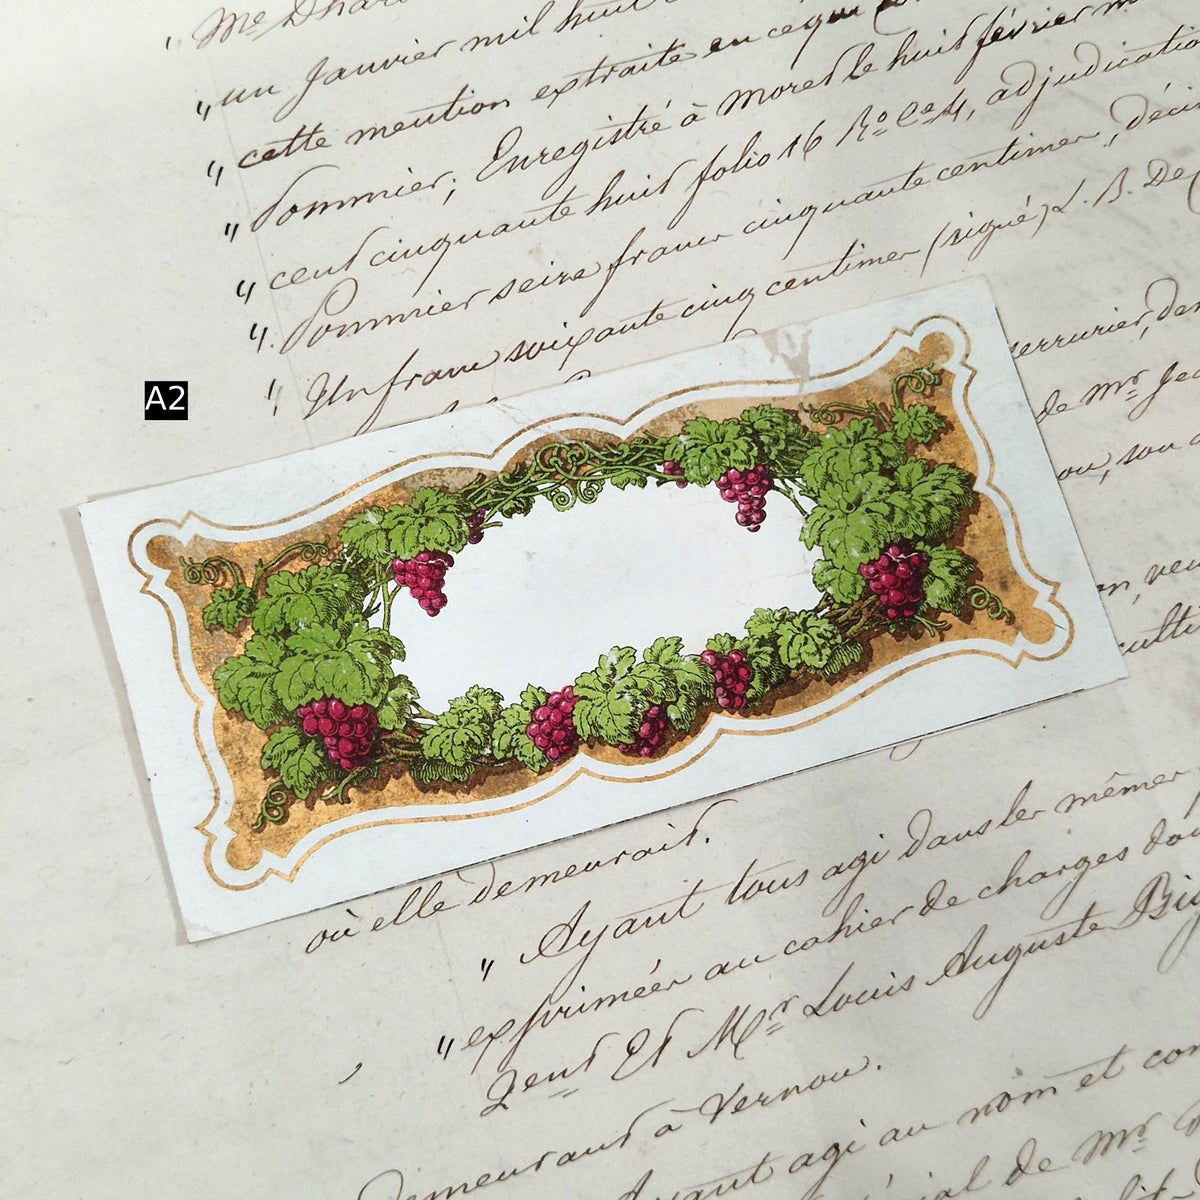 Me
„ un Janvier mil huit
„ cette mention extraite en ce qui
„ Pommier; Enregistré à Moret le huit février m
„ cent cinquante huit folio 16 Ro Ce 4, adjudicatio
„ Pommier seize francs cinquante centimes, déci
„ Un franc soixante cinq centimes (signé) L. B. De
serrurier, dem
de Mr Jea
ou, son
A2
on, veu
culti
où elle demeurait.
„ Ayant tous agi dans les mêmes
„ exprimées au cahier de charges do
2ent Et Mr Louis Auguste Big
demeurant à Vernou.
Ayant agi au nom et com
ial de Mr